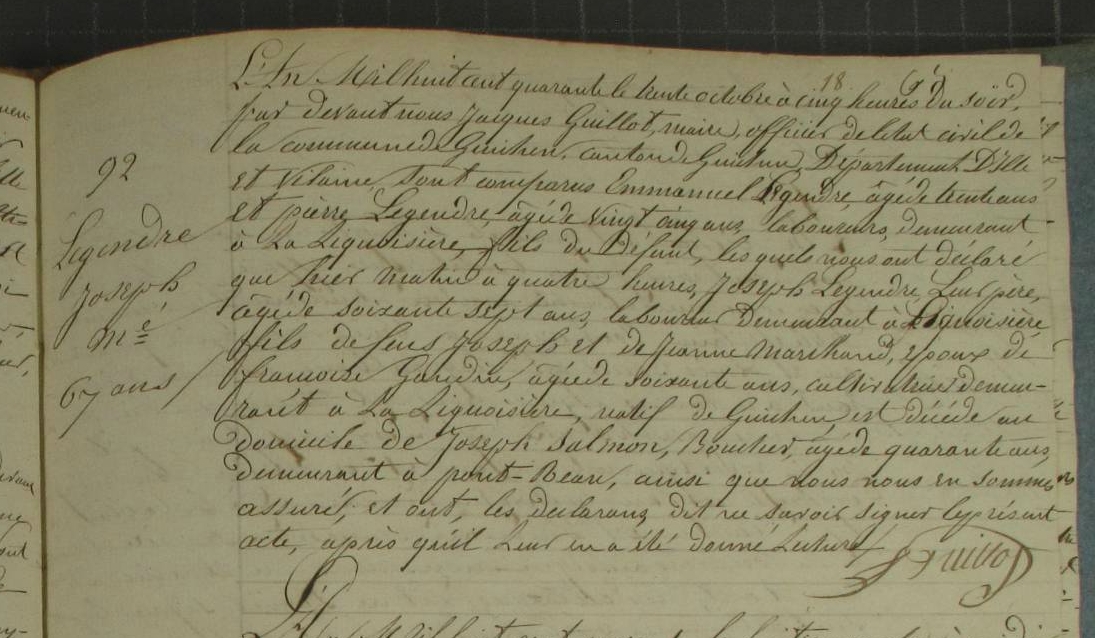 92
Legendre
Joseph
mé
67 ans
L'An Mil huit cent quarante le trente octobre à cinq heures du soir,
par devant nous Jacques Guillot, maire, officier de letat civil de
la commune de Guichen, canton de Guichen, Département D'Ille
et Vilaine, sont comparus Emmanuel Legendre, âgé de trente ans
et pierre Legendre, âgé de vingt cinq ans, laboureurs, demeurant
à La Liguoisière, fils du Défunt, les quels nous ont déclaré
que hier matin à quatre heures, Joseph Legendre, Leur père,
âgé de soixante sept ans, laboureur Demeurant à Liguoisière
fils de feus Joseph et de Jeanne Marchand, époux de
francoise Gaudin, âgée de soixante ans, cultivatrice demeu-
rant à La Liguoisière, natif de Guichen, est décédé au
domicile de Joseph Salmon, Boucher, âgé de quarante ans,
demeurant à pont-Bean, ainsi que nous nous en sommes
assuré, et ont, les declarans, dit ne savoir signer le présent
acte, après qu'il Leur en a été donné Lecture
Guillot